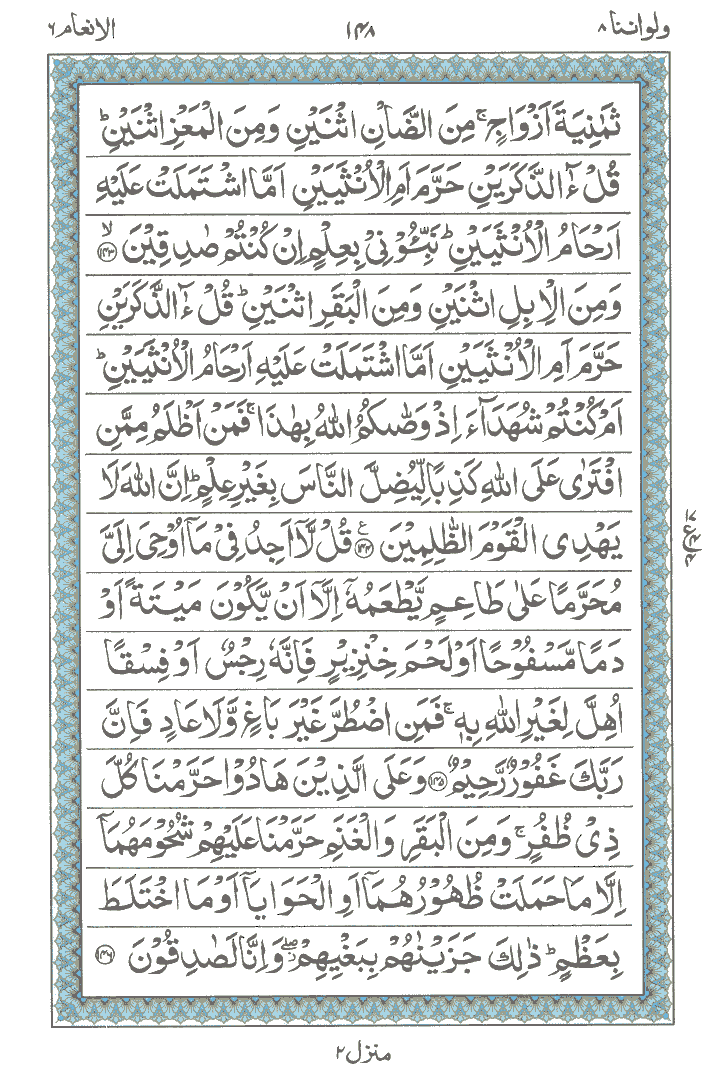 ولواننا ٨
١٤٨
الانعام ٦
ثَمٰنِيَةَ اَزْوَاجٍ ۚ مِنَ الضَّاْنِ اثْنَيْنِ وَمِنَ الْمَعْزِ اثْنَيْنِ ؕ
قُلْ ءٰٓالذَّكَرَيْنِ حَرَّمَ اَمِ الْاُنْثَيَيْنِ اَمَّا اشْتَمَلَتْ عَلَيْهِ
اَرْحَامُ الْاُنْثَيَيْنِ ؕ نَبِّـُٔوْنِيْ بِعِلْمٍ اِنْ كُنْتُمْ صٰدِقِيْنَ ۙ ﴿١٤٣﴾
وَمِنَ الْاِبِلِ اثْنَيْنِ وَمِنَ الْبَقَرِ اثْنَيْنِ ؕ قُلْ ءٰٓالذَّكَرَيْنِ
حَرَّمَ اَمِ الْاُنْثَيَيْنِ اَمَّا اشْتَمَلَتْ عَلَيْهِ اَرْحَامُ الْاُنْثَيَيْنِ ؕ
اَمْ كُنْتُمْ شُهَدَآءَ اِذْ وَصّٰىكُمُ اللّٰهُ بِهٰذَا ۚ فَمَنْ اَظْلَمُ مِمَّنِ
افْتَرٰى عَلَى اللّٰهِ كَذِبًا لِّيُضِلَّ النَّاسَ بِغَيْرِ عِلْمٍ ؕ اِنَّ اللّٰهَ لَا
يَهْدِى الْقَوْمَ الظّٰلِمِيْنَ ﴿١٤٤﴾ ع قُلْ لَّاۤ اَجِدُ فِيْ مَاۤ اُوْحِيَ اِلَيَّ
مُحَرَّمًا عَلٰى طَاعِمٍ يَّطْعَمُهٗۤ اِلَّاۤ اَنْ يَّكُوْنَ مَيْتَةً اَوْ
دَمًا مَّسْفُوْحًا اَوْ لَحْمَ خِنْزِيْرٍ فَاِنَّهٗ رِجْسٌ اَوْ فِسْقًا
اُهِلَّ لِغَيْرِ اللّٰهِ بِهٖ ۚ فَمَنِ اضْطُرَّ غَيْرَ بَاغٍ وَّلَا عَادٍ فَاِنَّ
رَبَّكَ غَفُوْرٌ رَّحِيْمٌ ﴿١٤٥﴾ وَعَلَى الَّذِيْنَ هَادُوْا حَرَّمْنَا كُلَّ
ذِيْ ظُفُرٍ ۚ وَمِنَ الْبَقَرِ وَالْغَنَمِ حَرَّمْنَا عَلَيْهِمْ شُحُوْمَهُمَاۤ
اِلَّا مَا حَمَلَتْ ظُهُوْرُهُمَاۤ اَوِ الْحَوَايَاۤ اَوْ مَا اخْتَلَطَ
بِعَظْمٍ ؕ ذٰلِكَ جَزَيْنٰهُمْ بِبَغْيِهِمْ ۖ وَاِنَّا لَصٰدِقُوْنَ ﴿١٤٦﴾
منزل ٢